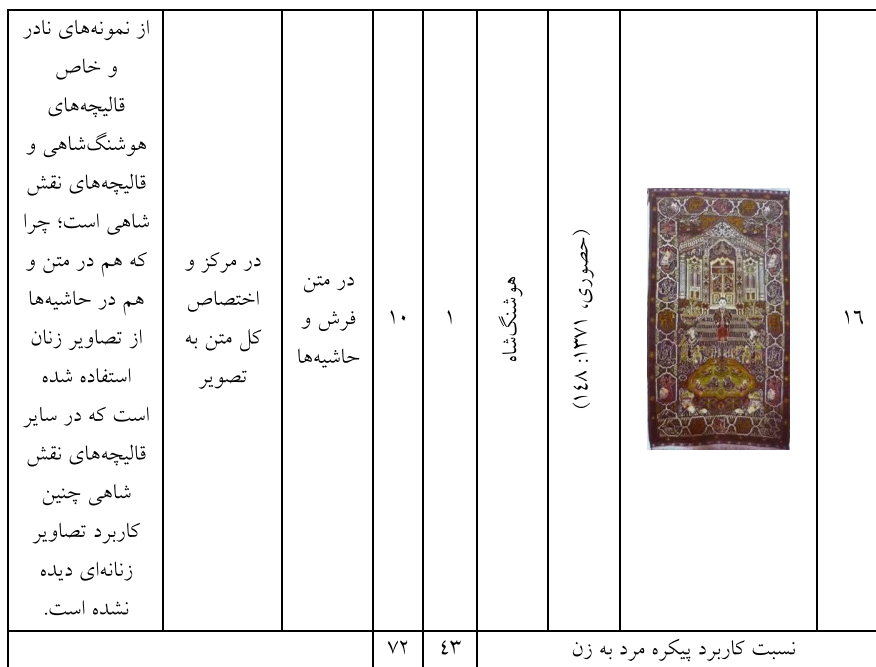 ۱٦
(حصوری، ۱۳۷۱: ۱٤۸)
هوشنگ‌شاه
۱
۱۰
در متن
فرش و
حاشیه‌ها
در مرکز و
اختصاص
کل متن به
تصویر
از نمونه‌های نادر
و خاص
قالیچه‌های
هوشنگ‌شاهی و
قالیچه‌های نقش
شاهی است؛ چرا
که هم در متن و
هم در حاشیه‌ها
از تصاویر زنان
استفاده شده
است که در سایر
قالیچه‌های نقش
شاهی چنین
کاربرد تصاویر
زنانه‌ای دیده
نشده است.
نسبت کاربرد پیکره مرد به زن
٤۳
۷۲